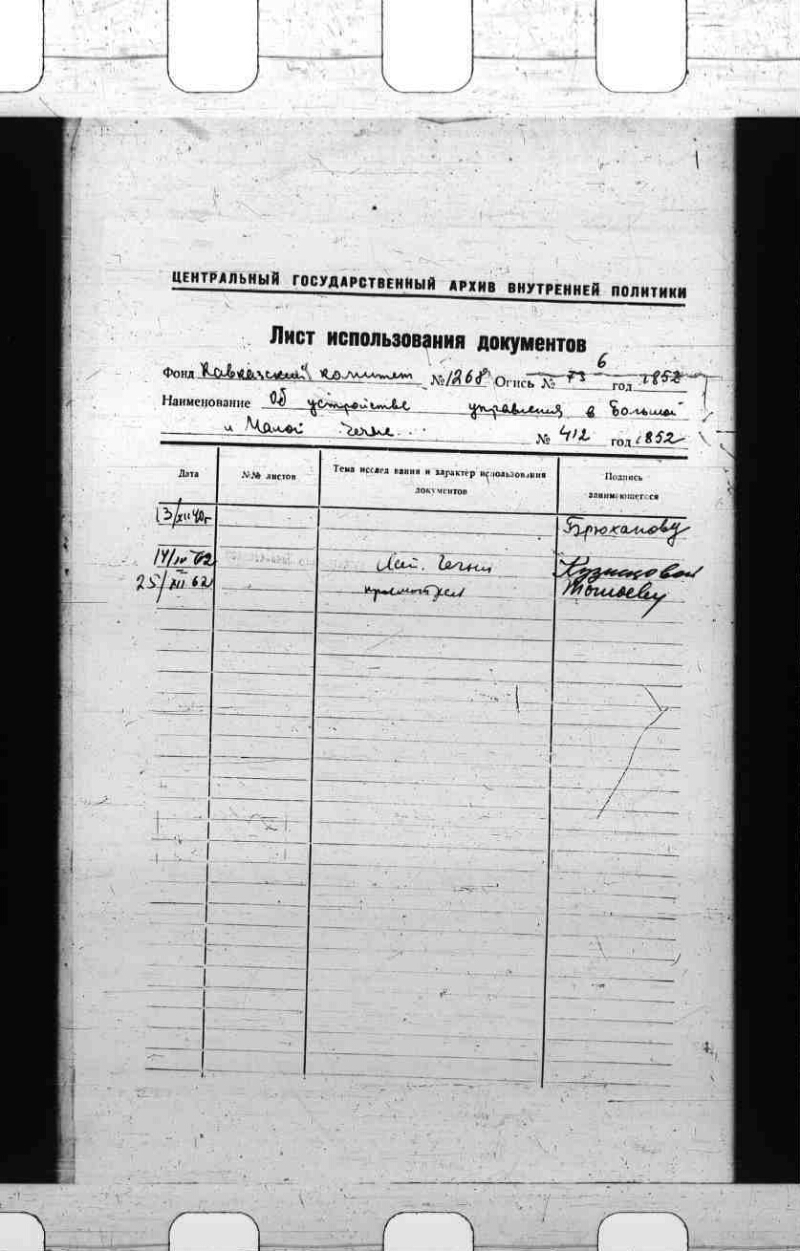 ЦЕНТРАЛЬНЫЙ ГОСУДАРСТВЕННЫЙ АРХИВ ВНУТРЕННЕЙ ПОЛИТИКИ
Лист использования документов
6
Фонд Кавказский комитет №1268 Опись № 73 год 1852
Наименование Об устройстве управления в Большой
и Малой Чечне... № 412 год 1852
Дата №№ листов Тема исследования и характер использования документов Подпись занимающегося
13/XII 40г Брюханову
14/IV 62 Чечни Кузнецовой
25/XII 62 просмотрел